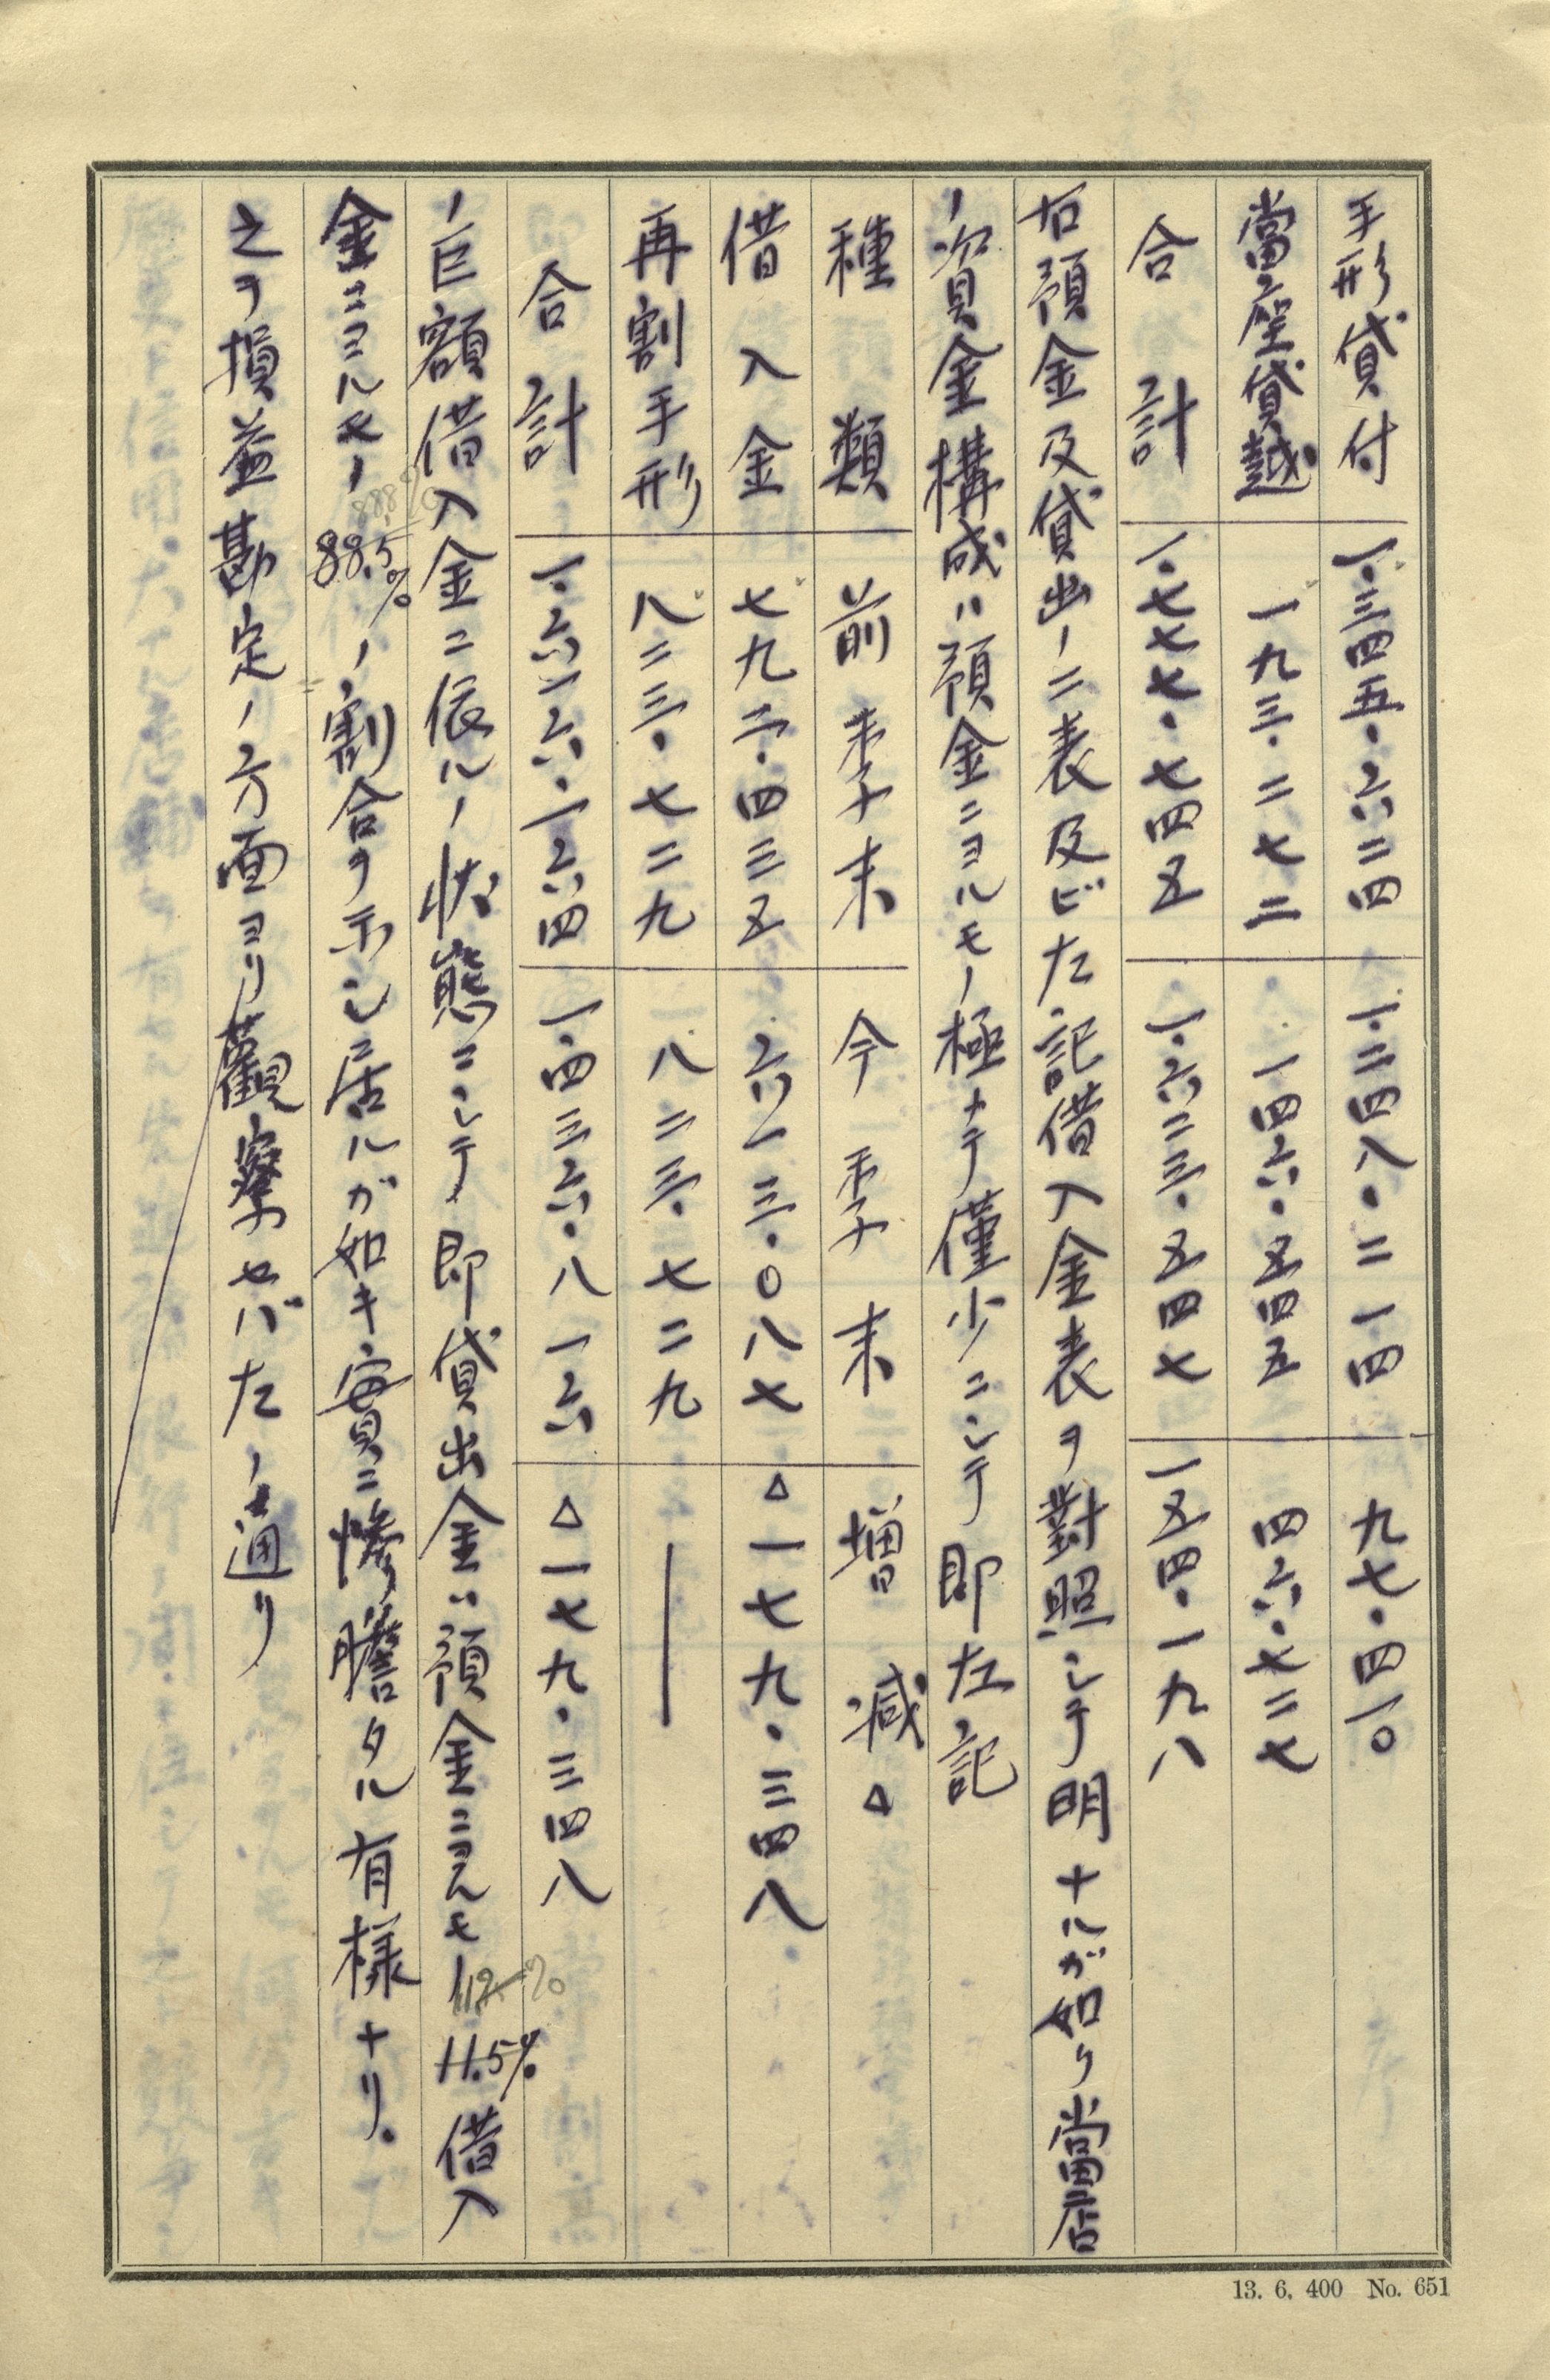 手形貸付 一.三四五.六二四 一.二四八.二一四 九七.四一〇
當座貸越 一九三.二七二 一四六.五四五 四六.七二七
合計 一.七七七.七四五 一.六二三.五四七 一五四.一九八
右預金及貸出ノ二表及ビ左記借入金表ヲ對照シテ明ナルガ如ク當店
ノ資金構成ハ預金ニヨルモノ極メテ僅少ニシテ即左記
種類 前季末 今季末 増減△
借入金 七九二.四三五 六一三.〇八七 △一七九.三四八
再割手形 八二三.七二九 八二三.七二九 ―
合計 一.六一六.一六四 一.四三六.八一六 △一七九.三四八
ノ巨額借入金ニ依ルノ状態ニシテ即貸出金ハ預金ニヨルモノ 11.5% 借入
金ニヨルモノ 88.5% ノ割合ヲ示シ居ルガ如キ實ニ慘膽タル有様ナリ。
之ヲ損益勘定ノ方面ヨリ觀察セバ左ノ通リ
13. 6. 400 No. 651